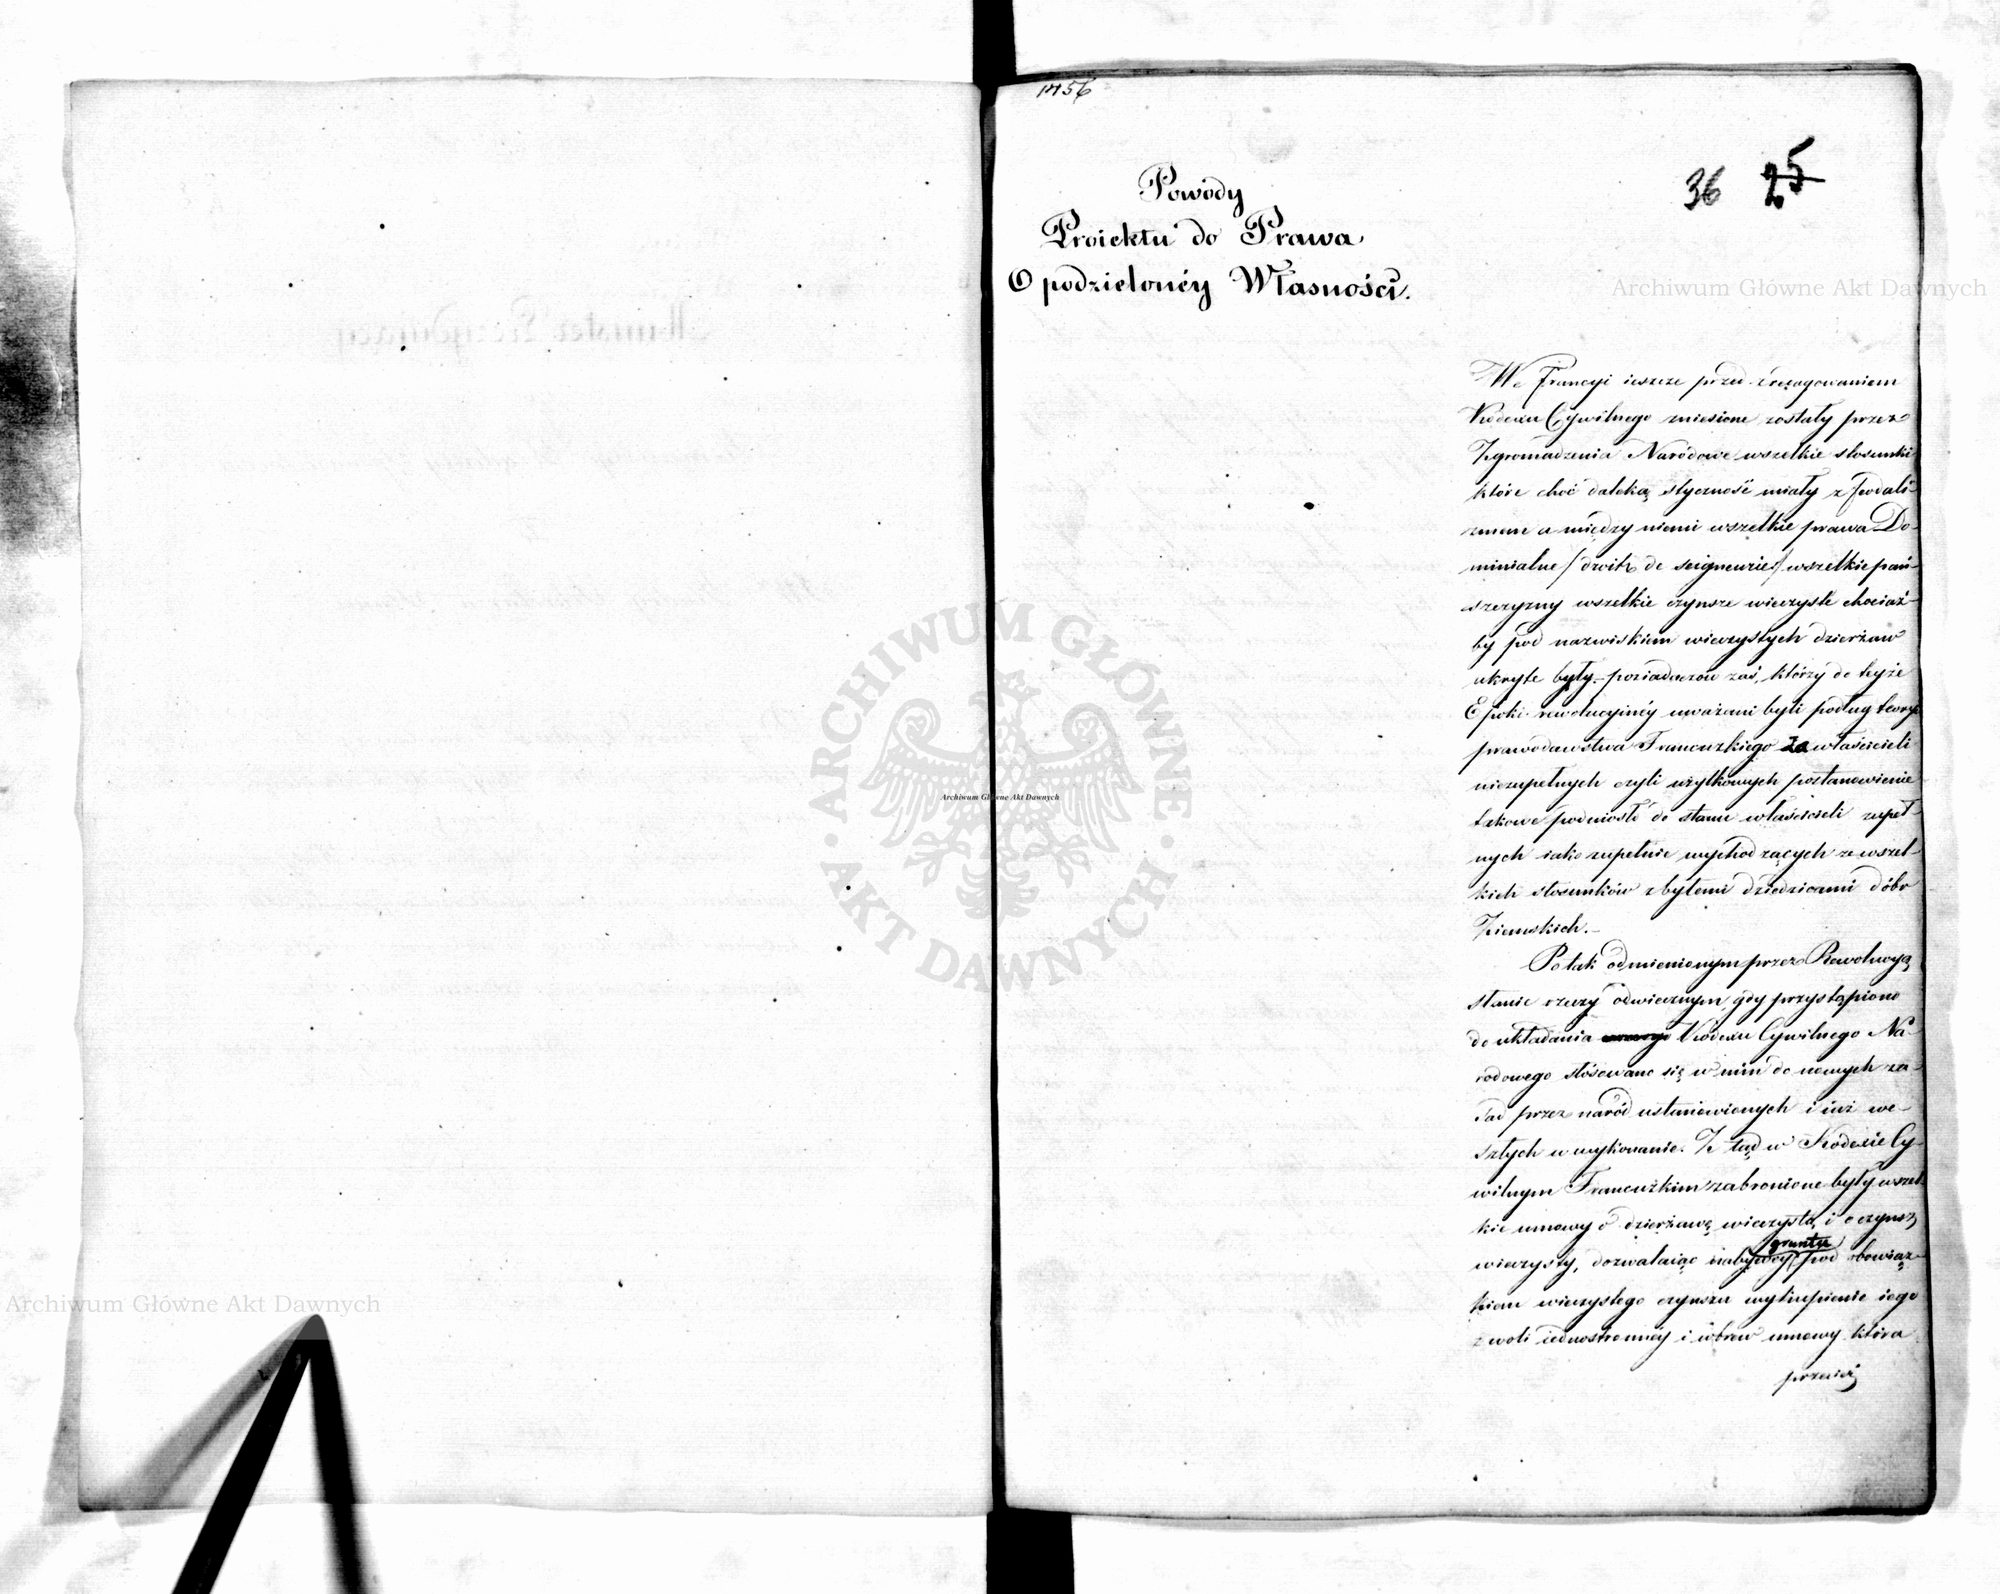 1156
36 25
Powody
Proiektu do Prawa
O podzielonéy Własności.
We Francyi ieszcze przed zredagowaniem
Kodexu Cywilnego zniesione zostały przez
Zgromadzenia Narodowe wszelkie stosunki
które choć daleką styczność miały z feodali-
zmem a między niemi wszelkie prawa Do-
minialne / droits de seigneurie / wszelkie pań-
szczyzny wszelkie czynsze wieczyste chociaż-
by pod nazwiskiem wieczystych dzierżaw
ukryte były. posiadaczów zaś, którzy do teyże
Epoki rewolucyinéy uważani byli podług teoryi
prawodawstwa Francuzkiego za właścicieli
niezupełnych czyli użytkowych postanowienie
takowe podniosło do stanu właścicieli zupeł-
nych iako zupełnie wychodzących ze wszel-
kich stosunków z byłemi dziedzicami dóbr
Ziemskich.-
Po tak odmienionym przez Rewolucyą
stanie rzeczy odwiecznym gdy przystąpiono
do układania Kodexu Cywilnego Na-
rodowego stósowano się w nim do nowych za-
sad przez naród ustanowionych i iuż we-
szłych w wykonanie. Z tąd w Kodexie Cy-
wilnym Francuzkim zabronione były wszel-
kie umowy o dzierżawę wieczystą i o czynsz
wieczysty, dozwalaiąc nabywcy gruntu pod obowiąz-
kiem wieczystego czynszu wykupienie iego
z woli iednostronnéy i wbrew umowy która
przecież
Archiwum Główne Akt Dawnych
Archiwum Główne Akt Dawnych
Archiwum Główne Akt Dawnych
ARCHIWUM GŁÓWNE · AKT DAWNYCH ·